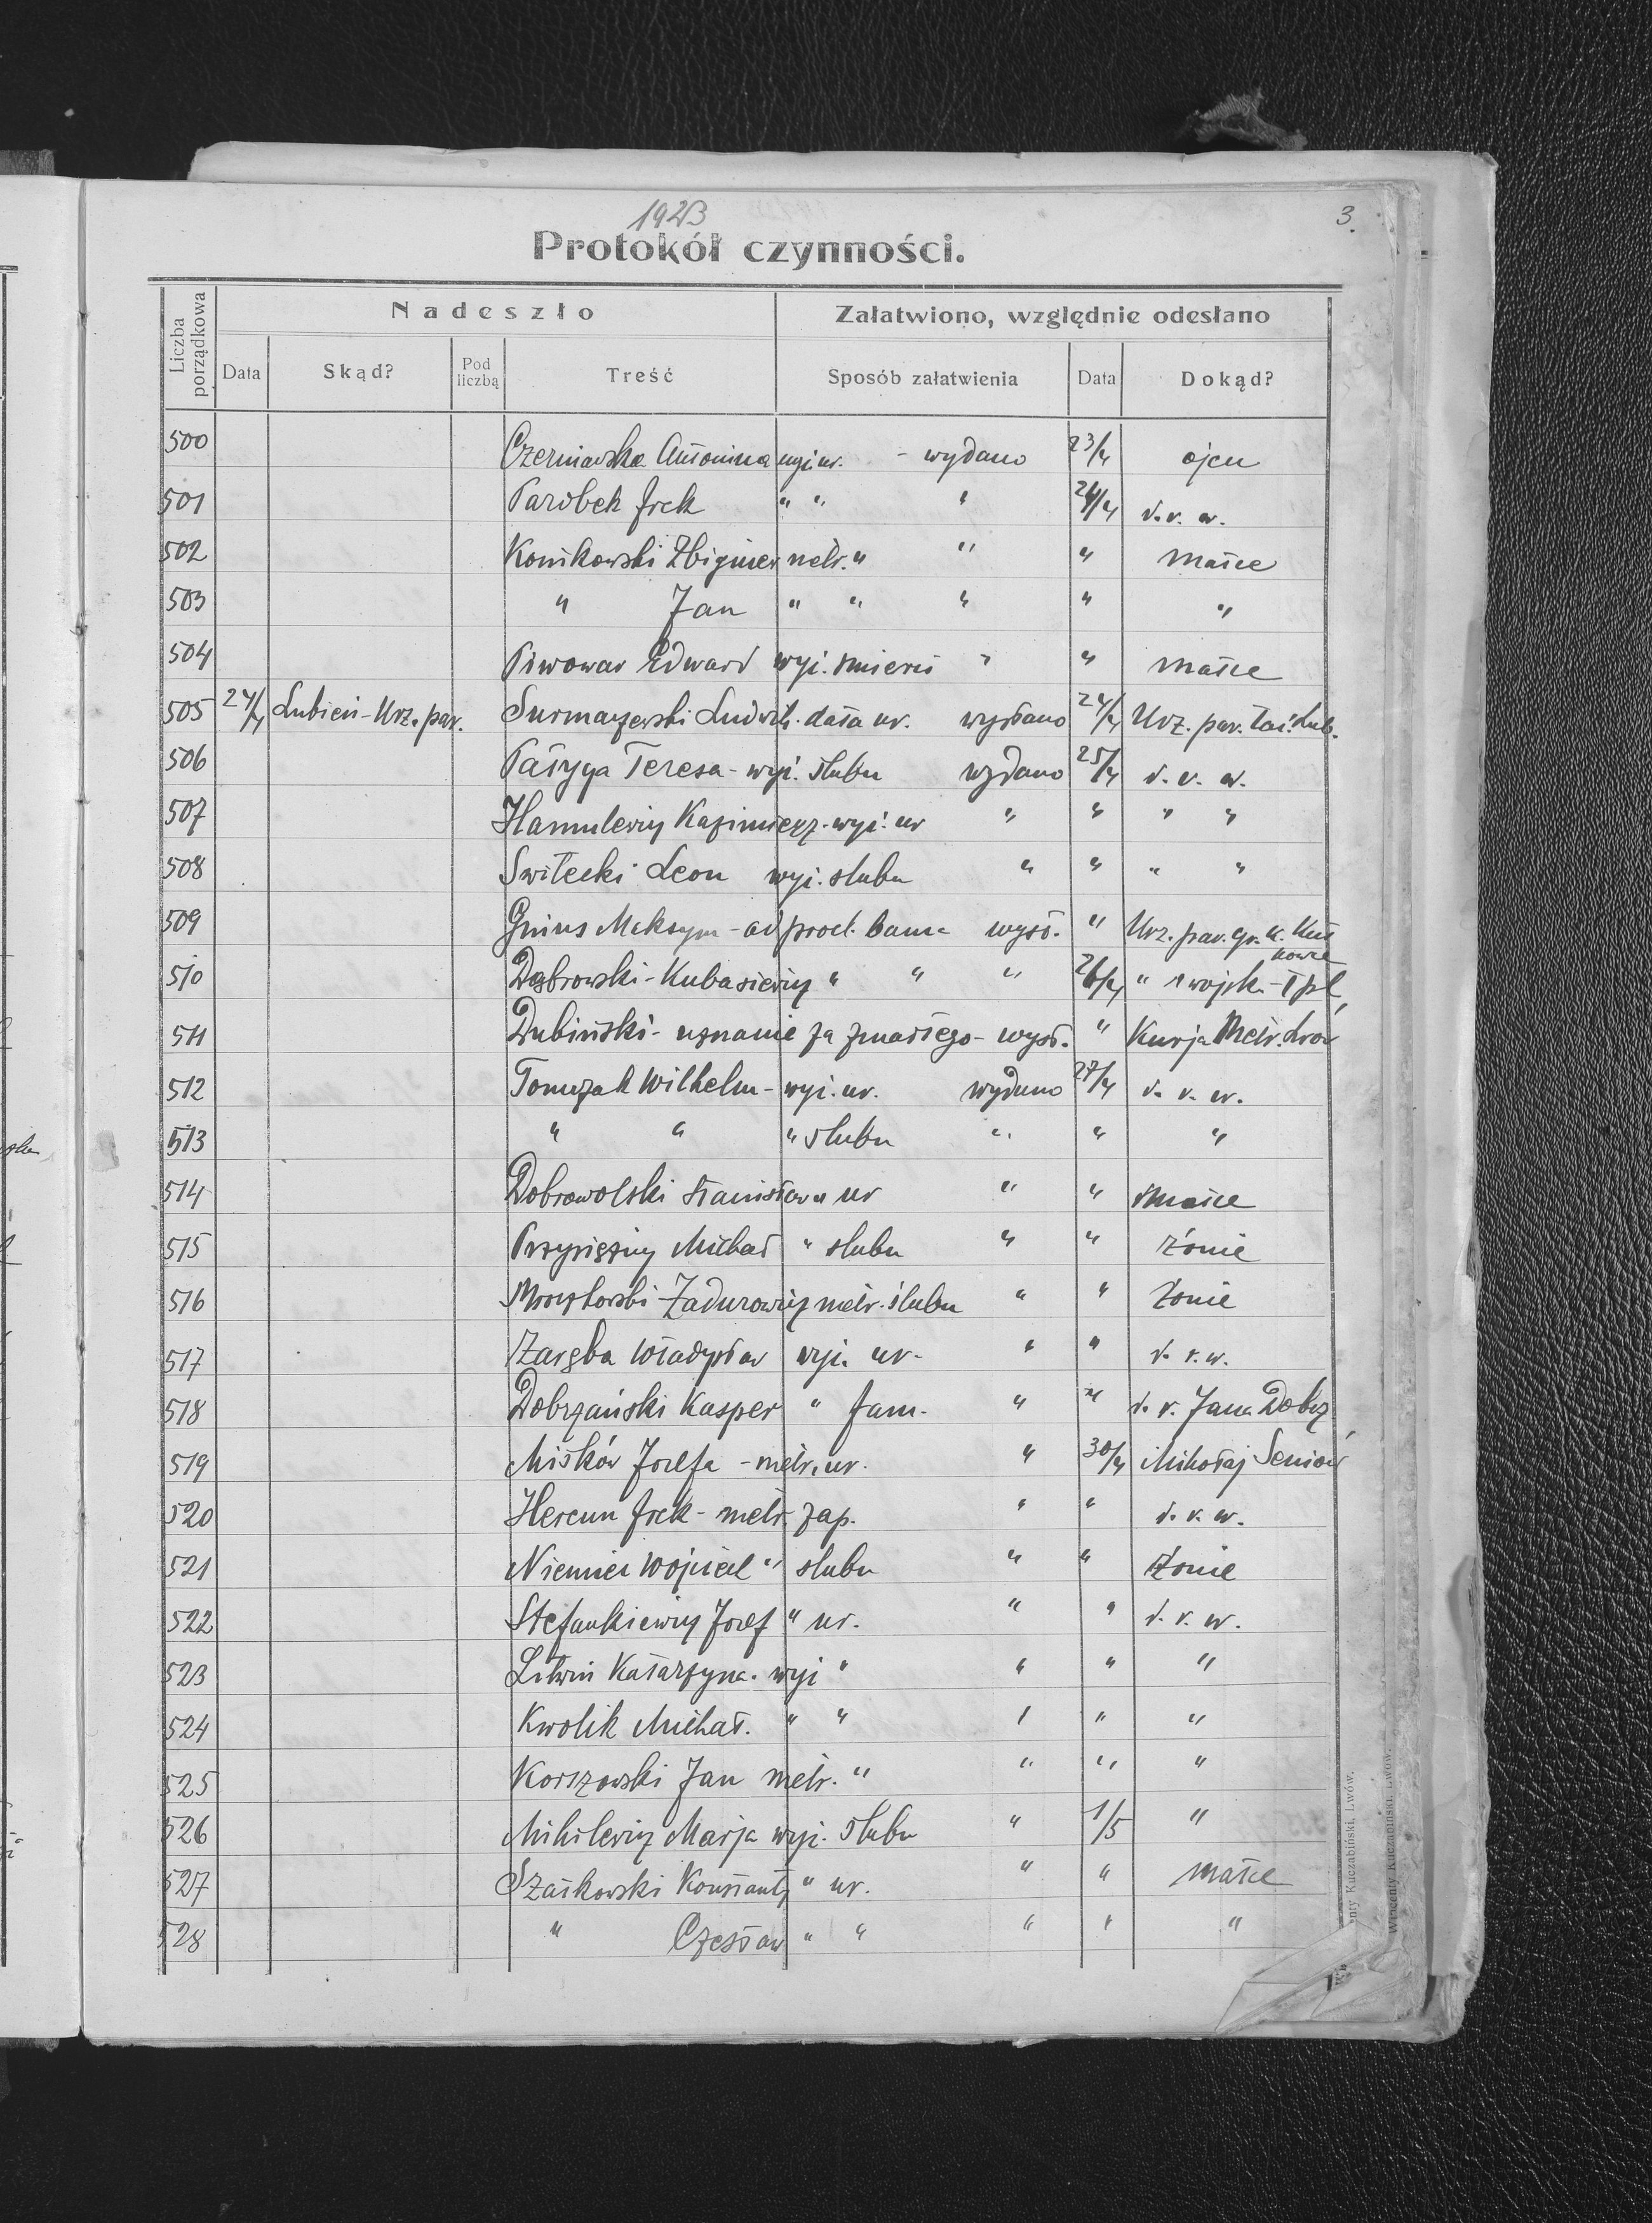 1923
3.
Protokół czynności.
Liczba porządkowa
Nadeszło
Załatwiono, względnie odesłano
Data Skąd? Pod liczbą Treść Sposób załatwienia Data Dokąd?
500 Czerniawska Antonina wyi. ur. - wydano 23/4 ojcu
501 Parobek frck " " " 24/4 d. r. w.
502 Konikowski Zbigniew metr. " " " matce
503 " Jan " " " " "
504 Piwowar Edward wyi. śmierci " " matce
505 24/4 Lubień - Urz. par. Surmaczewski Ludwik. data ur. wysłano 24/4 Urz. par. łać. Lub.
506 Patyga Teresa - wyi. ślubu wydano 25/4 d. r. w.
507 Hamulewicz Kazimierz - wyi. ur " " " "
508 Switecki Leon wyi. slubu " " " "
509 Gnius Maksym - ad procl. banna wysł. " Urz. par. gr. k.
510 Dąbrowski - Kubasiewicz " " " 26/4 " wojsk.
511 Dubiński - uznanie za zmarłego - wysł. " Kurja Metr. Lwów
512 Tomczak Wilhelm - wyi. ur. wydano 27/4 d. r. w.
513 " " " slubu " " "
514 Dobrowolski Stanisław " ur " " matce
515 Przysiężny Michał " slubu " " żonie
516 Zadurowicz metr. ślubu " " żonie
517 Zaręba Władysław wyi. ur. " " d. r. w.
518 Dobrzański Kasper " fam. " " d. r. Jana Dobrz
519 Miśków Jozefa - metr. ur. " 30/4 Mikołaj Seniów
520 Hercun frck - metr. zap. " " d. r. w.
521 Niemiec Wojciech " slubu " " żonie
522 Stefankiewicz Jozef " ur. " " d. r. w.
523 Litwin Katarzyna. wyi " " " "
524 Kwolik Michał. " " " " "
525 Korszowski Jan metr. " " " "
526 Mikilewicz Marja wyi. slubu " 1/5 "
527 Szatkowski Konstanty " ur. " " matce
528 " Czesław " " " " "
Wincenty Kuczabiński. Lwów.
nty Kuczabiński. Lwów.